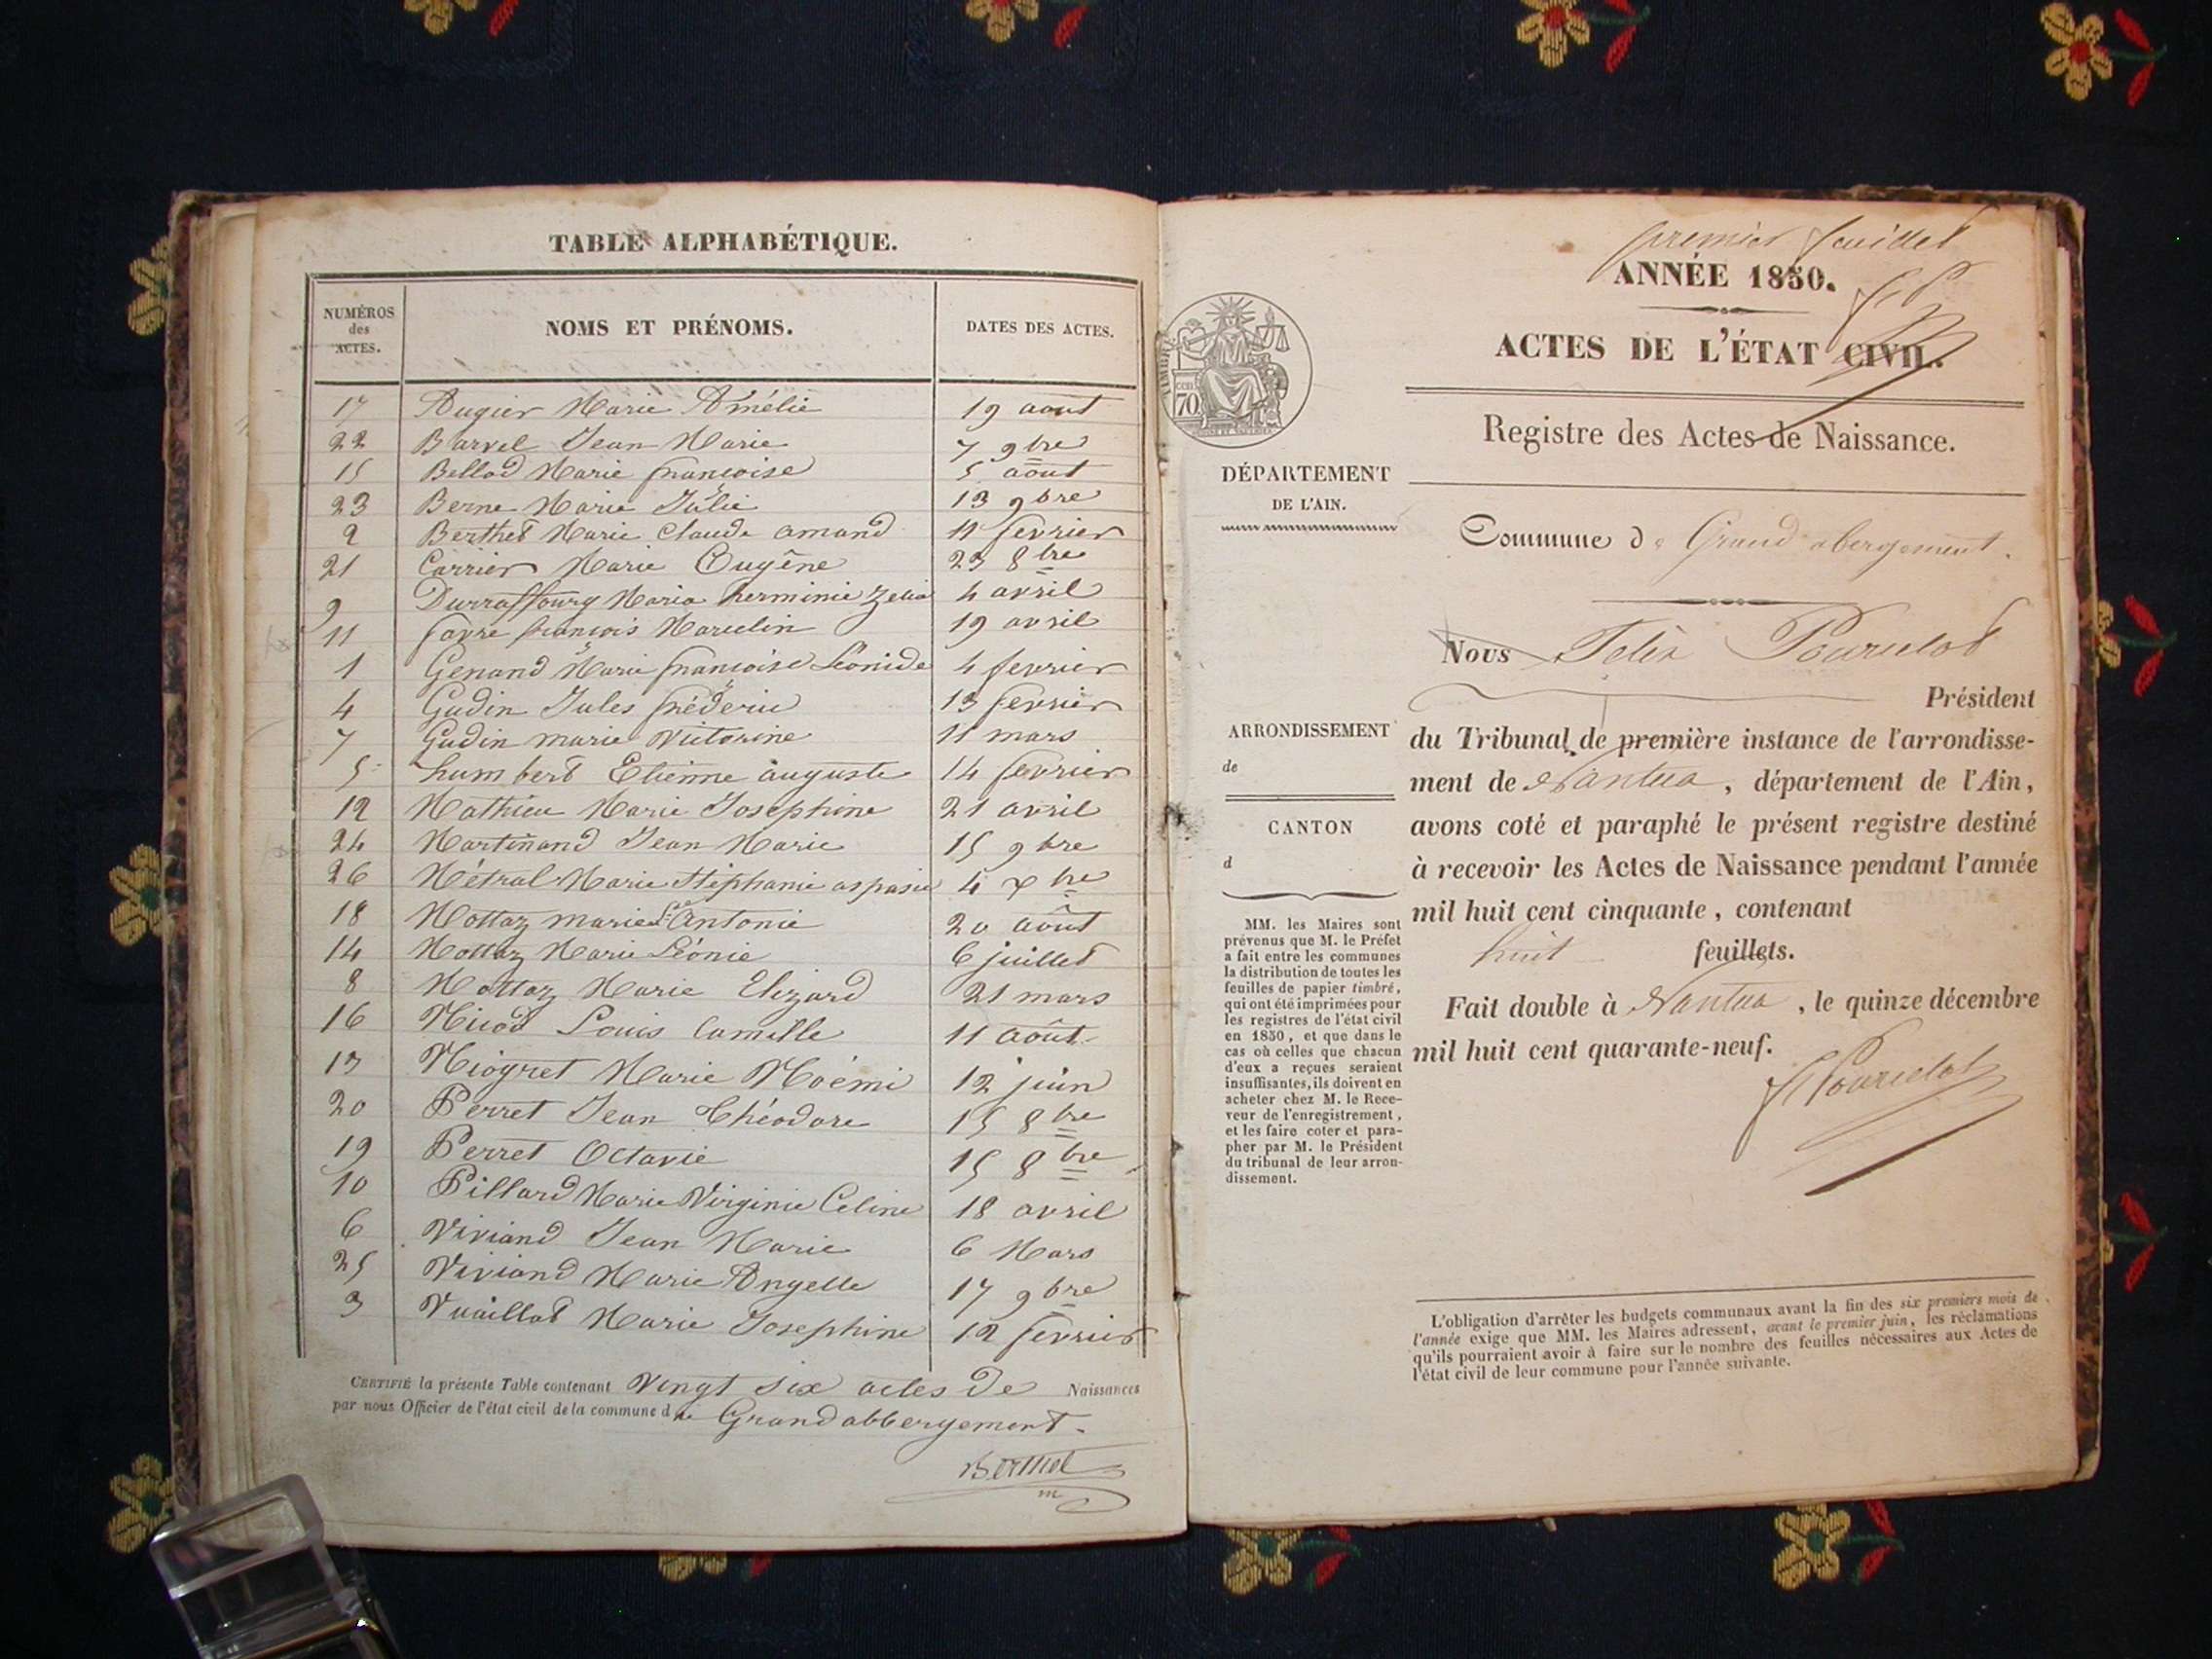 TABLE ALPHABÉTIQUE.
NUMÉROS des ACTES. NOMS ET PRÉNOMS. DATES DES ACTES.
17 Augier Marie Amélie 19 aout
22 Barvel Jean Marie 7 9bre
15 Bellod Marie françoise 5 août
23 Berne Marie Julie 13 9bre
2 Berthet Marie Claude amand 11 fevrier
21 Carrier Marie Eugêne 23 8bre
9 Durraffourg Maria herminie Zelia 4 avril
11 favre françois Marcelin 19 avril
1 Genand Marie françoise Léonide 4 fevrier
4 Gudin Jules fréderic 13 fevrier
7 Gudin marie Victorine 11 mars
5 humbert Etienne auguste 14 fevrier
12 Mathieu Marie Josephine 21 avril
24 Martinand Jean Marie 15 9bre
26 Métral Marie Stéphanie aspasie 4 xbre
18 Mottaz marie Antonie 20 août
14 Mottaz Marie Léonie 6 juillet
8 Mottaz Marie Elizard 21 mars
16 Nicod Louis Camille 11 août
13 Niogret Marie Noémi 12 juin
20 Perret Jean Théodore 15 8bre
19 Perret Octavie 15 8bre
10 Pillard Marie Virginie Celine 18 avril
6 Viviand Jean Marie 6 Mars
25 Viviand Marie Angelle 17 9bre
3 Vuaillat Marie Josephine 12 fevrier
CERTIFIÉ la présente Table contenant Vingt six actes de Naissances
par nous Officier de l'état civil de la commune d de Grand abbergement.
Berthet
m
premier feuillet
ANNÉE 1850.
ACTES DE L'ÉTAT CIVIL.
Registre des Actes de Naissance.
TIMBRE
70
DÉPARTEMENT
DE L'AIN.
Commune de Grand abergement.
Nous Felix Pourcelot
Président
du Tribunal de première instance de l'arrondisse-
ment de Nantua, département de l'Ain,
avons coté et paraphé le présent registre destiné
à recevoir les Actes de Naissance pendant l'année
mil huit cent cinquante, contenant
huit feuillets.
Fait double à Nantua, le quinze décembre
mil huit cent quarante-neuf.
Pourcelot
ARRONDISSEMENT
de
CANTON
d
MM. les Maires sont
prévenus que M. le Préfet
a fait entre les communes
la distribution de toutes les
feuilles de papier timbré,
qui ont été imprimées pour
les registres de l'état civil
en 1850, et que dans le
cas où celles que chacun
d'eux a reçues seraient
insuffisantes, ils doivent en
acheter chez M. le Rece-
veur de l'enregistrement,
et les faire coter et para-
pher par M. le Président
du tribunal de leur arron-
dissement.
L'obligation d'arrêter les budgets communaux avant la fin des six premiers mois de
l'année exige que MM. les Maires adressent, avant le premier juin, les réclamations
qu'ils pourraient avoir à faire sur le nombre des feuilles nécessaires aux Actes de
l'état civil de leur commune pour l'année suivante.